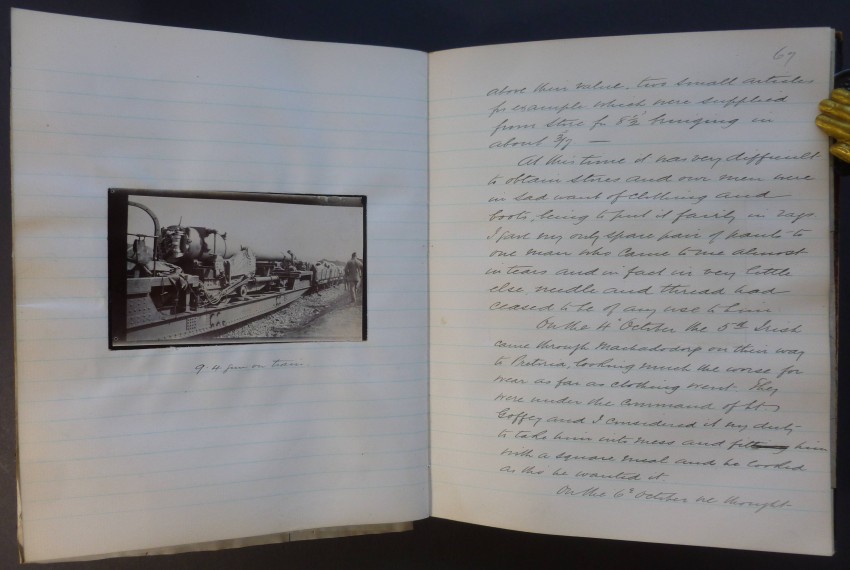 9.4 gun on train.
67
above their value - two small articles
for example which were supplied
from store for 8½ bringing in
about 3/9 —
At this time it was very difficult
to obtain stores and our men were
in sad want of clothing and
boots, being to put it fairly in rags
I gave my only spare pair of pants to
one man who came to me almost
in tears and in fact in very little
else, needle and thread had
ceased to be of any use to him.
On the 4th October the 5th Irish
came through Machadodorp on their way
to Pretoria, looking much the worse for
wear as far as clothing went. They
were under the command of Lt
Goffey and I considered it my duty
to take him into mess and him
with a square meal and he looked
as tho he wanted it.
On the 6th October we thought